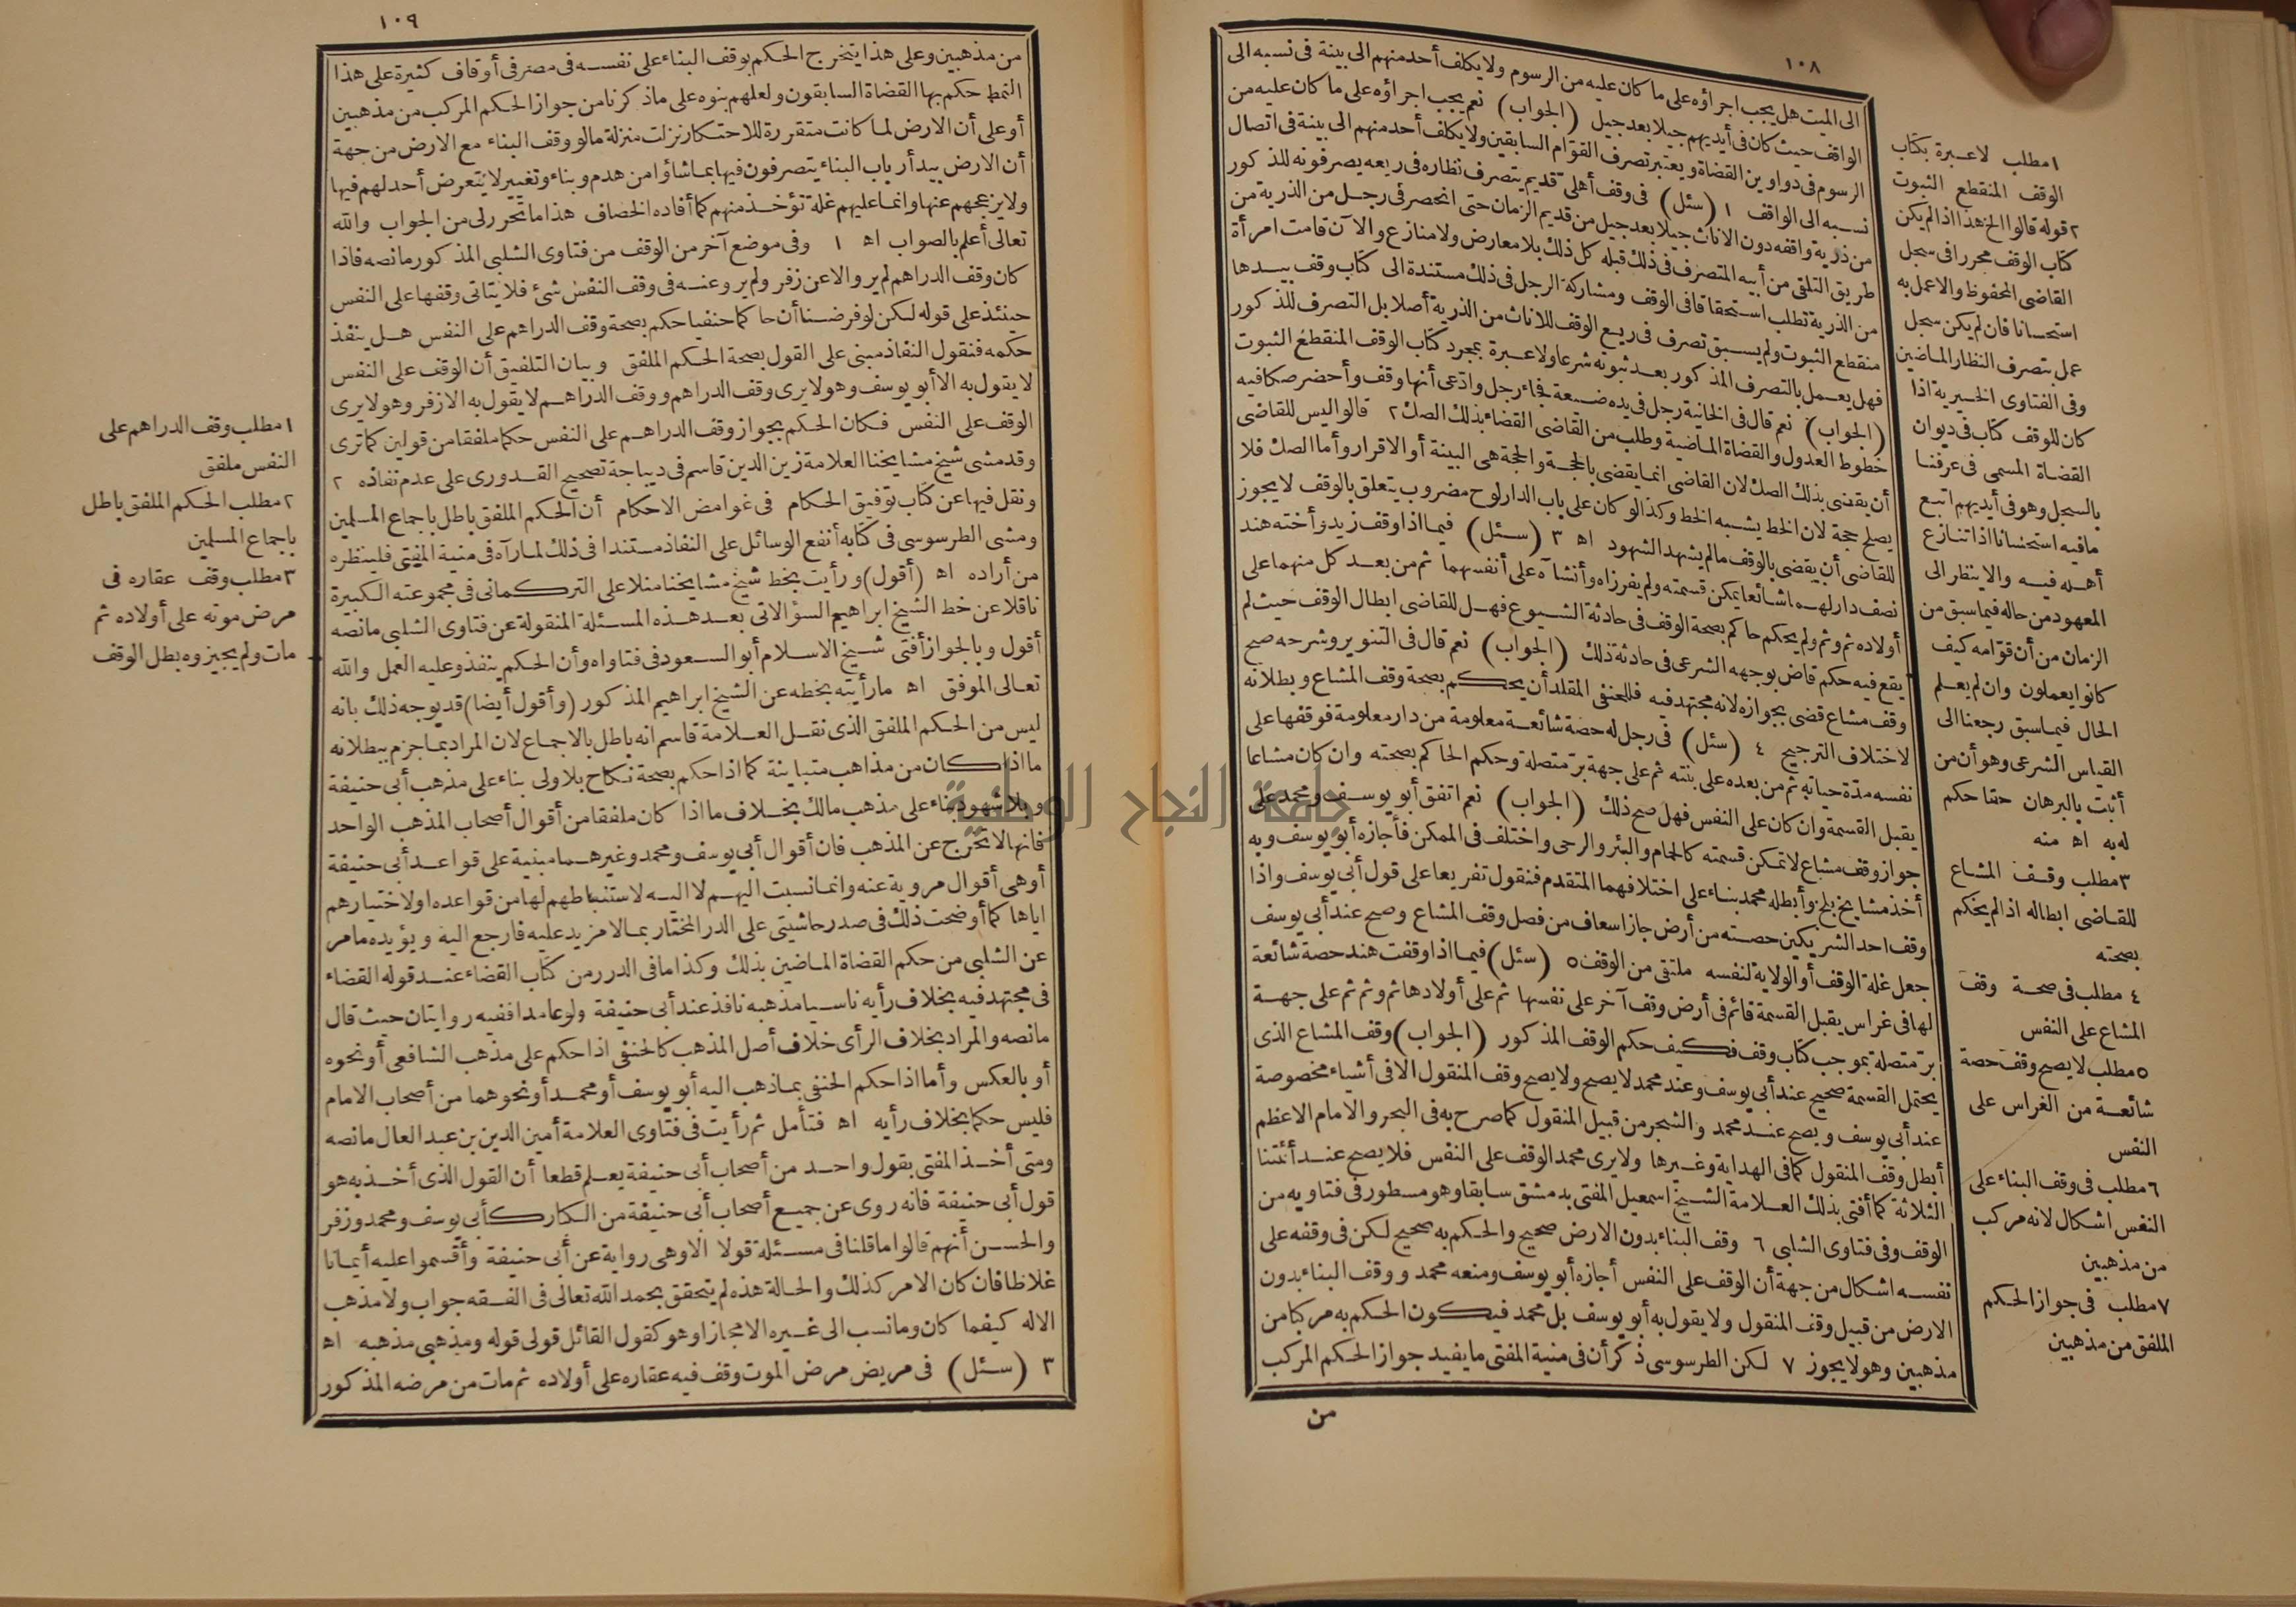 ١٠٨
الى الميت هل يجب اجراؤه على ما كان عليه من الرسوم ولا يكلف أحد منهم الى بينة فى نسبه الى
الواقف حيث كان فى أيديهم جيلا بعد جيل (الجواب) نعم يجب اجراؤه على ما كان عليه من
الرسوم فى دواوين القضاة ويعتبر تصرف القوّام السابقين ولا يكلف أحد منهم الى بينة فى اتصال
نسبه الى الواقف ١ (سئل) فى وقف أهلى قديم يتصرف نظاره فى ريعه يصرفونه للذكور
من ذرية واقفه دون الاناث جيلا بعد جيل من قديم الزمان حتى انحصر فى رجل من الذرية من
طريق التلقى من أبيه المتصرف فى ذلك قبله كل ذلك بلا معارض ولا منازع والآن قامت امرأة
من الذرية تطلب استحقاقا فى الوقف ومشاركة الرجل فى ذلك مستندة الى كتاب وقف بيدها
منقطع الثبوت ولم يسبق تصرف فى ريع الوقف للاناث من الذرية أصلا بل التصرف للذكور
فهل يعمل بالتصرف المذكور بعد ثبوته شرعا ولا عبرة بمجرد كتاب الوقف المنقطع الثبوت
(الجواب) نعم قال فى الخانية رجل فى يده ضيعة فجاء رجل وادّعى أنها وقف وأحضر صكا فيه
خطوط العدول والقضاة الماضية وطلب من القاضى القضاء بذلك الصك ٢ قالوا ليس للقاضى
أن يقضى بذلك الصك لان القاضى انما يقضى بالحجة والحجة هى البينة أو الاقرار وأما الصك فلا
يصلح حجة لان الخط يشبه الخط وكذا لو كان على باب الدار لوح مضروب يتعلق بالوقف لا يجوز
للقاضى أن يقضى بالوقف مالم يشهد الشهود اه ٣ (سئل) فيما اذا وقف زيد وأخته هند
نصف دار لهما شائعا يمكن قسمته ولم يفرزاه وأنشآه على أنفسهما ثم من بعد كل منهما على
أولاده ثم وثم ولم يحكم حاكم بصحة الوقف فى حادثة الشيوع فهل للقاضى ابطال الوقف حيث لم
يقع فيه حكم قاض بوجهه الشرعى فى حادثة ذلك (الجواب) نعم قال فى التنوير وشرحه صح
وقف مشاع قضى بجوازه لانه مجتهد فيه فللحنفى المقلد أن يحكم بصحة وقف المشاع وبطلانه
لاختلاف الترجيح ٤ (سئل) فى رجل له حصة شائعة معلومة من دار معلومة فوقفها على
نفسه مدّة حياته ثم من بعده على بنته ثم على جهة برّ متصلة وحكم الحاكم بصحته وان كان مشاعا
يقبل القسمة وان كان على النفس فهل صح ذلك (الجواب) نعم اتفق أبو يوسف ومحمد على
جواز وقف مشاع لا تمكن قسمته كالحمام والبئر والرحى واختلف فى الممكن فأجازه أبو يوسف وبه
أخذ مشايخ بلخ وأبطله محمد بناء على اختلافهما المتقدم فنقول تفريعا على قول أبى يوسف واذا
وقف احد الشريكين حصته من أرض جاز اسعاف من فصل وقف المشاع وصح عند أبى يوسف
جعل غلة الوقف أو الولاية لنفسه ملتقى من الوقف ٥ (سئل) فيما اذا وقفت هند حصة شائعة
لها فى غراس يقبل القسمة قائم فى أرض وقف آخر على نفسها ثم على أولادها ثم وثم ثم على جهة
برّ متصلة بموجب كتاب وقف فكيف حكم الوقف المذكور (الجواب) وقف المشاع الذى
يحتمل القسمة صحيح عند أبى يوسف وعند محمد لا يصح ولا يصح وقف المنقول الا فى أشياء مخصوصة
عند أبى يوسف ويصح عند محمد والشجر من قبيل المنقول كما صرح به فى البحر والامام الاعظم
أبطل وقف المنقول كما فى الهداية وغيرها ولا يرى محمد الوقف على النفس فلا يصح عند أئمتنا
الثلاثة كما أفتى بذلك العلامة الشيخ اسمعيل المفتى بدمشق سابقا وهو مسطور فى فتاويه من
الوقف وفى فتاوى الشلبى ٦ وقف البناء بدون الارض صحيح والحكم به صحيح لكن فى وقفه على
نفسه اشكال من جهة أن الوقف على النفس أجازه أبو يوسف ومنعه محمد ووقف البناء بدون
الارض من قبيل وقف المنقول ولا يقول به أبو يوسف بل محمد فيكون الحكم به مركبا من
مذهبين وهو لا يجوز ٧ لكن الطرسوسى ذكر أن فى منية المفتى ما يفيد جواز الحكم المركب
من
١ مطلب لا عبرة بكتاب
الوقف المنقطع الثبوت
٢ قوله قالوا الخ هذا اذا لم يكن
كتاب الوقف محررا فى سجل
القاضى المحفوظ والا عمل به
استحسانا فان لم يكن سجل
عمل بتصرف النظار الماضين
وفى الفتاوى الخيرية اذا
كان للوقف كتاب فى ديوان
القضاة المسمى فى عرفنا
بالسجل وهو فى أيديهم اتبع
ما فيه استحسانا اذا تنازع
أهله فيه والا ينظر الى
المعهود من حاله فيما سبق من
الزمان من أن قوّامه كيف
كانوا يعملون وان لم يعلم
الحال فيما سبق رجعنا الى
القياس الشرعى وهو أن من
أثبت بالبرهان حقا حكم
له به اه منه
٣ مطلب وقف المشاع
للقاضى ابطاله اذا لم يحكم
بصحته
٤ مطلب فى صحة وقف
المشاع على النفس
٥ مطلب لا يصح وقف حصة
شائعة من الغراس على
النفس
٦ مطلب فى وقف البناء على
النفس اشكال لانه مركب
من مذهبين
٧ مطلب فى جواز الحكم
الملفق من مذهبين
١٠٩
من مذهبين وعلى هذا يتخرج الحكم بوقف البناء على نفسه فى مصر فى أوقاف كثيرة على هذا
النمط حكم بها القضاة السابقون ولعلهم بنوه على ما ذكرنا من جواز الحكم المركب من مذهبين
أو على أن الارض لما كانت متقررة للاحتكار نزلت منزلة ما لو وقف البناء مع الارض من جهة
أن الارض بيد أرباب البناء يتصرفون فيها بما شاؤا من هدم وبناء وتغيير لا يتعرض أحد لهم فيها
ولا يزعجهم عنها وانما عليهم غلة تؤخذ منهم كما أفاده الخصاف هذا ما تحرر لى من الجواب والله
تعالى أعلم بالصواب اه ١ وفى موضع آخر من الوقف من فتاوى الشلبى المذكور ما نصه فاذا
كان وقف الدراهم لم يرو الا عن زفر ولم يرو عنه فى وقف النفس شئ فلا يتاتى وقفها على النفس
حينئذ على قوله لكن لو فرضنا أن حاكما حنفيا حكم بصحة وقف الدراهم على النفس هل ينفذ
حكمه فنقول النفاذ مبنى على القول بصحة الحكم الملفق وبيان التلفيق أن الوقف على النفس
لا يقول به الا أبو يوسف وهو لا يرى وقف الدراهم ووقف الدراهم لا يقول به الا زفر وهو لا يرى
الوقف على النفس فكان الحكم بجواز وقف الدراهم على النفس حكما ملفقا من قولين كما ترى
وقد مشى شيخ مشايخنا العلامة زين الدين قاسم فى ديباجة تصحيح القدورى على عدم نفاذه ٢
ونقل فيها عن كتاب توفيق الحكام فى غوامض الاحكام أن الحكم الملفق باطل باجماع المسلمين
ومشى الطرسوسى فى كتابه أنفع الوسائل على النفاذ مستندا فى ذلك لما رآه فى منية المفتى فلينظره
من أراده اه (أقول) ورأيت بخط شيخ مشايخنا منلا على التركمانى فى مجموعته الكبيرة
ناقلا عن خط الشيخ ابراهيم السؤالاتى بعد هذه المسئلة المنقولة عن فتاوى الشلبى ما نصه
أقول وبالجواز أفتى شيخ الاسلام أبو السعود فى فتاواه وأن الحكم ينفذ وعليه العمل والله
تعالى الموفق اه ما رأيته بخطه عن الشيخ ابراهيم المذكور (وأقول أيضا) قد يوجه ذلك بانه
ليس من الحكم الملفق الذى نقل العلامة قاسم انه باطل بالاجماع لان المراد بما جزم ببطلانه
ما اذا كان من مذاهب متباينة كما اذا حكم بصحة نكاح بلا ولى بناء على مذهب أبى حنيفة
وبلا شهود بناء على مذهب مالك بخلاف ما اذا كان ملفقا من أقوال أصحاب المذهب الواحد
فانها لا تخرج عن المذهب فان أقوال أبى يوسف ومحمد وغيرهما مبنية على قواعد أبى حنيفة
أو هى أقوال مروية عنه وانما نسبت اليهم لا اليه لاستنباطهم لها من قواعده او لاختيارهم
اياها كما أوضحت ذلك فى صدر حاشيتى على الدر المختار بما لا مزيد عليه فارجع اليه ويؤيده ما مر
عن الشلبى من حكم القضاة الماضين بذلك وكذا ما فى الدرر من كتاب القضاء عند قوله القضاء
فى مجتهد فيه بخلاف رأيه ناسيا مذهبه نافذ عند أبى حنيفة ولو عامدا ففيه روايتان حيث قال
ما نصه والمراد بخلاف الرأى خلاف أصل المذهب كالحنفى اذا حكم على مذهب الشافعى أو نحوه
أو بالعكس وأما اذا حكم الحنفى بما ذهب اليه أبو يوسف أو محمد أو نحوهما من أصحاب الامام
فليس حكما بخلاف رأيه اه فتأمل ثم رأيت فى فتاوى العلامة أمين الدين بن عبد العال ما نصه
ومتى أخذ المفتى بقول واحد من أصحاب أبى حنيفة يعلم قطعا أن القول الذى أخذ به هو
قول أبى حنيفة فانه روى عن جميع أصحاب أبى حنيفة من الكبار كأبى يوسف ومحمد وزفر
والحسن أنهم قالوا ما قلنا فى مسئلة قولا الا وهى رواية عن أبى حنيفة وأقسموا عليه أيمانا
غلاظا فان كان الامر كذلك والحالة هذه لم يتحقق بحمد الله تعالى فى الفقه جواب ولا مذهب
الا له كيفما كان وما نسب الى غيره الا مجازا وهو كقول القائل قولى قوله ومذهبى مذهبه اه
٣ (سئل) فى مريض مرض الموت وقف فيه عقاره على أولاده ثم مات من مرضه المذكور
١ مطلب وقف الدراهم على
النفس ملفق
٢ مطلب الحكم الملفق باطل
باجماع المسلمين
٣ مطلب وقف عقاره فى
مرض موته على أولاده ثم
مات ولم يجيزوه بطل الوقف
جامعة النجاح الوطنية